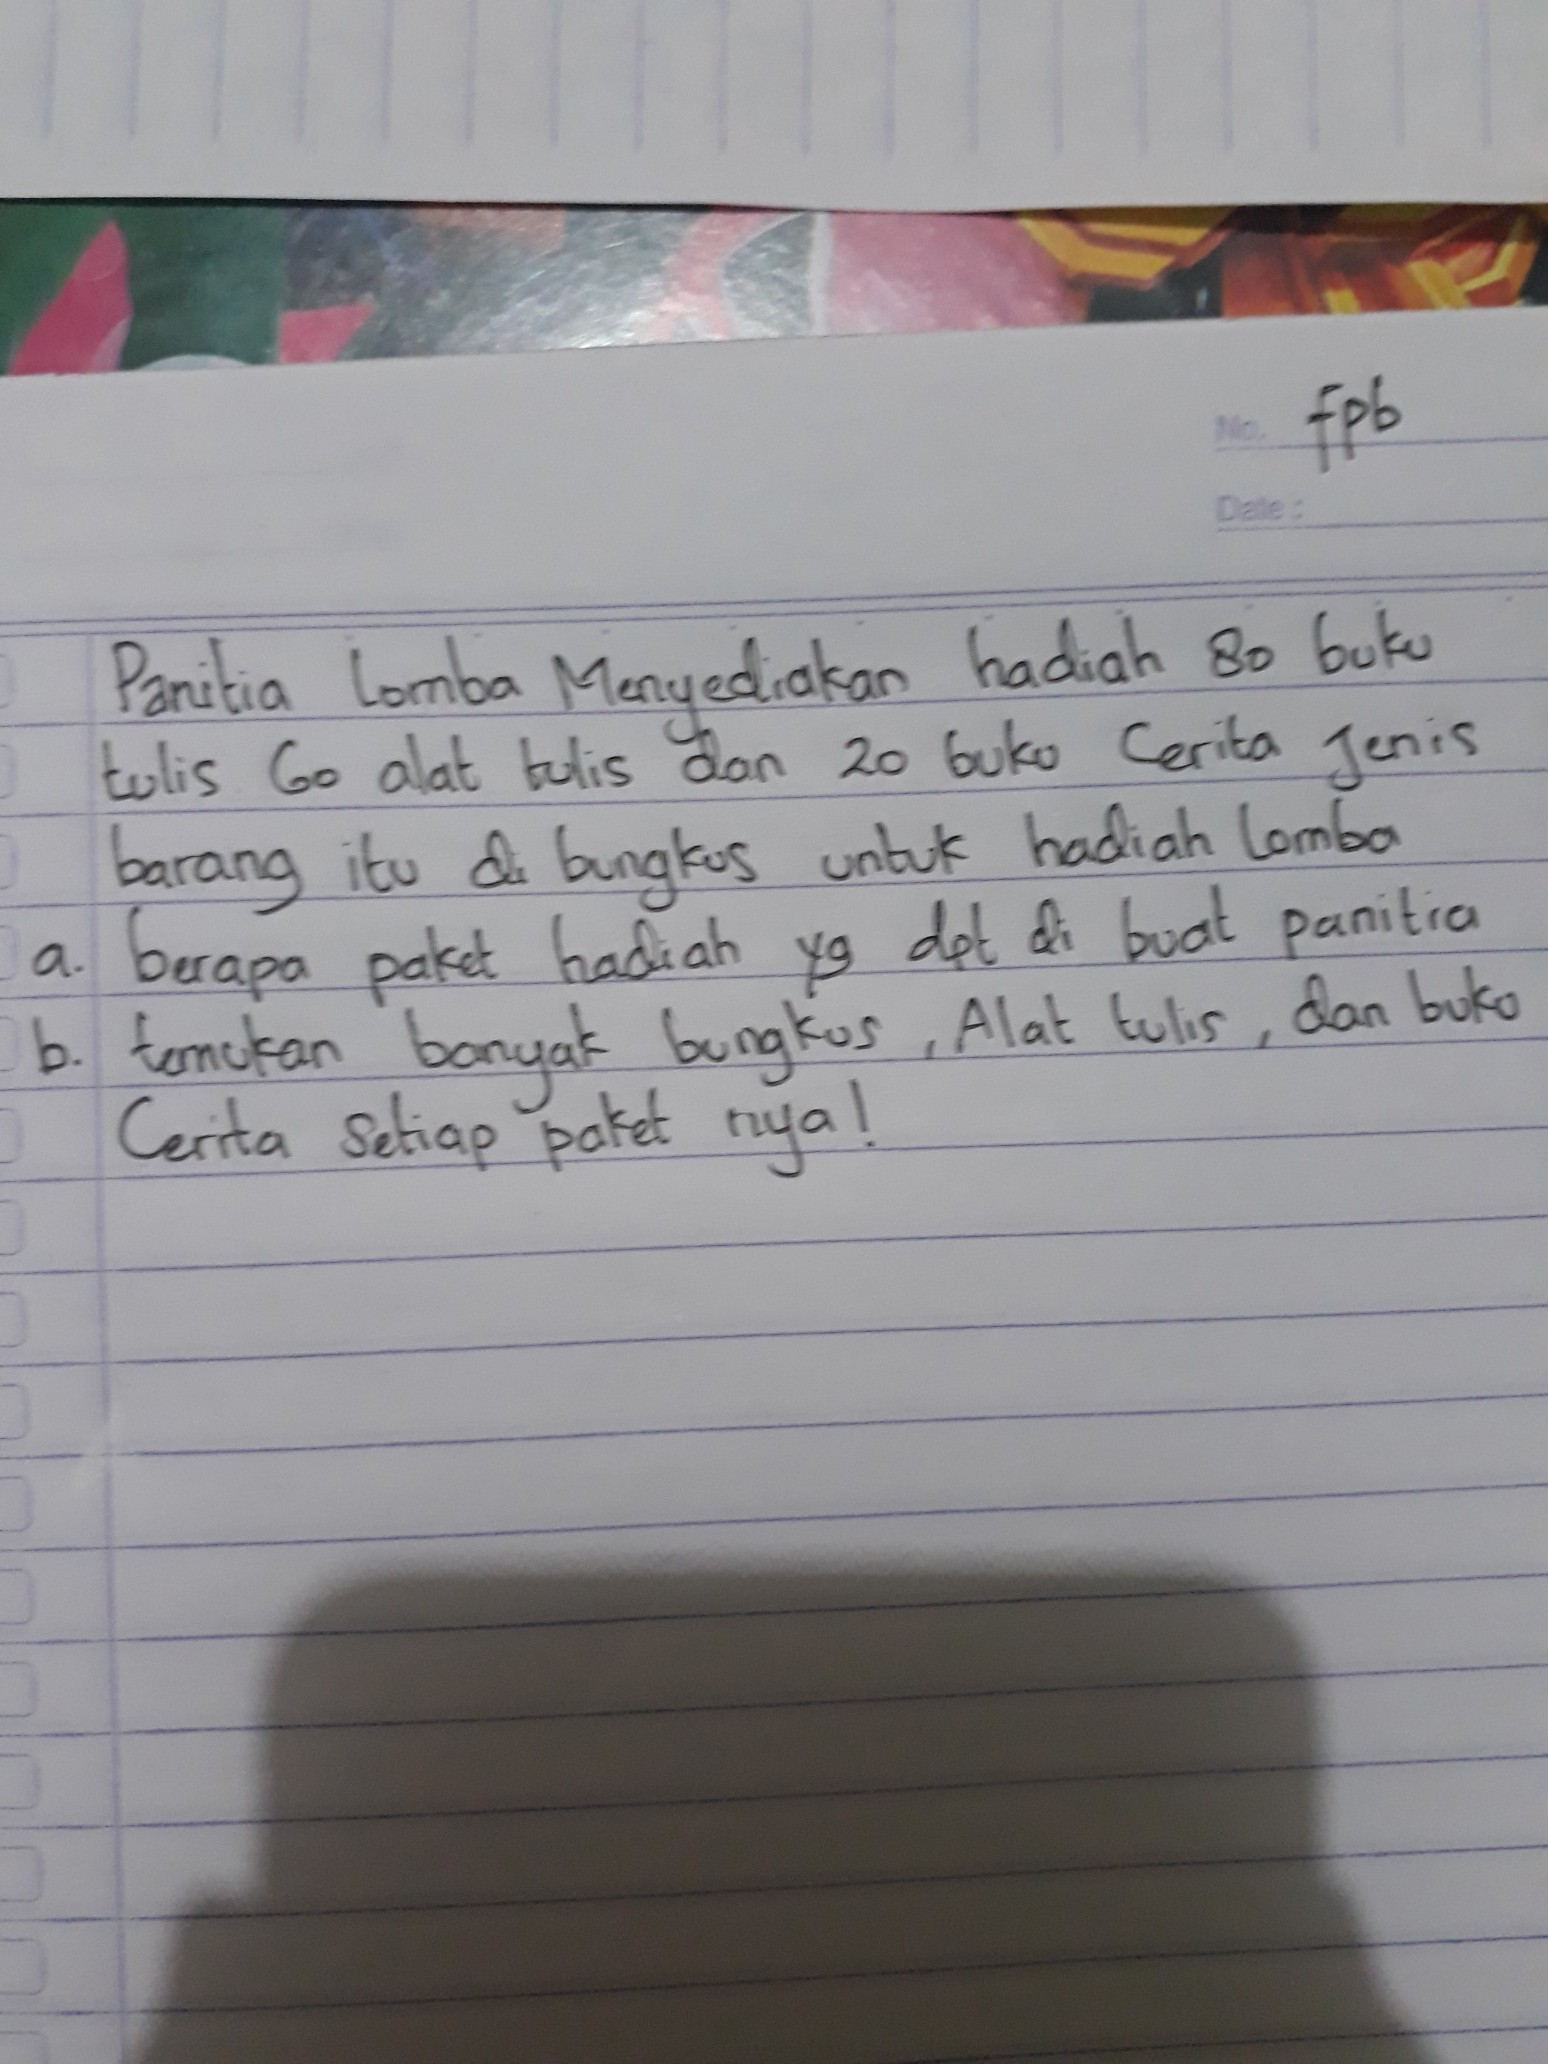 No. fpb
Date :
Panitia lomba Menyediakan hadiah 80 buku
tulis 60 alat tulis dan 20 buku Cerita Jenis
barang itu di bungkus untuk hadiah lomba
a. berapa paket hadiah yg dpt di buat panitia
b. temukan banyak bungkus, Alat tulis, dan buku
Cerita Setiap paket nya!